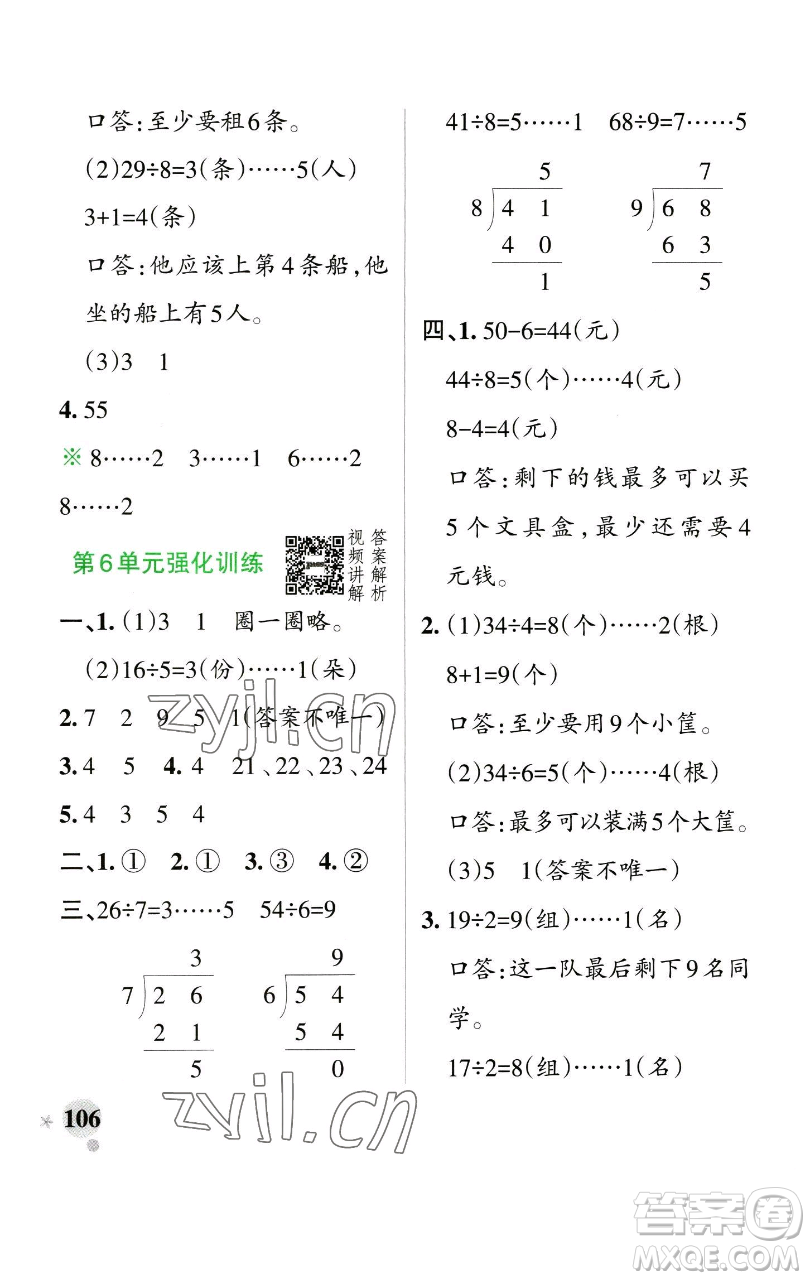 口答:至少要租6条。
(2)29÷8=3(条)……5(人)
3+1=4(条)
口答:他应该上第4条船,他
坐的船上有5人。
(3)3 1
4.55
※ 8……2 3……1 6……2
8……2
第6单元强化训练
视频讲解
答案解析
一、1.(1)3 1 圈一圈略。
(2)16÷5=3(份)……1(朵)
2.7 2 9 5 1(答案不唯一)
3.4 5 4.4 21、22、23、24
5.4 3 5 4
二、1.① 2.① 3.③ 4.②
三、26÷7=3……5 54÷6=9
3 9
7 2 6 6 5 4
2 1 5 4
5 0
106
41÷8=5……1 68÷9=7……5
5 7
8 4 1 9 6 8
4 0 6 3
1 5
四、1.50-6=44(元)
44÷8=5(个)……4(元)
8-4=4(元)
口答:剩下的钱最多可以买
5个文具盒,最少还需要4
元钱。
2.(1)34÷4=8(个)……2(根)
8+1=9(个)
口答:至少要用9个小筐。
(2)34÷6=5(个)……4(根)
口答:最多可以装满5个大筐。
(3)5 1(答案不唯一)
3.19÷2=9(组)……1(名)
口答:这一队最后剩下9名同
学。
17÷2=8(组)……1(名)
zyjl.cn
zyjl.cn
答案圈
MXQE.COM